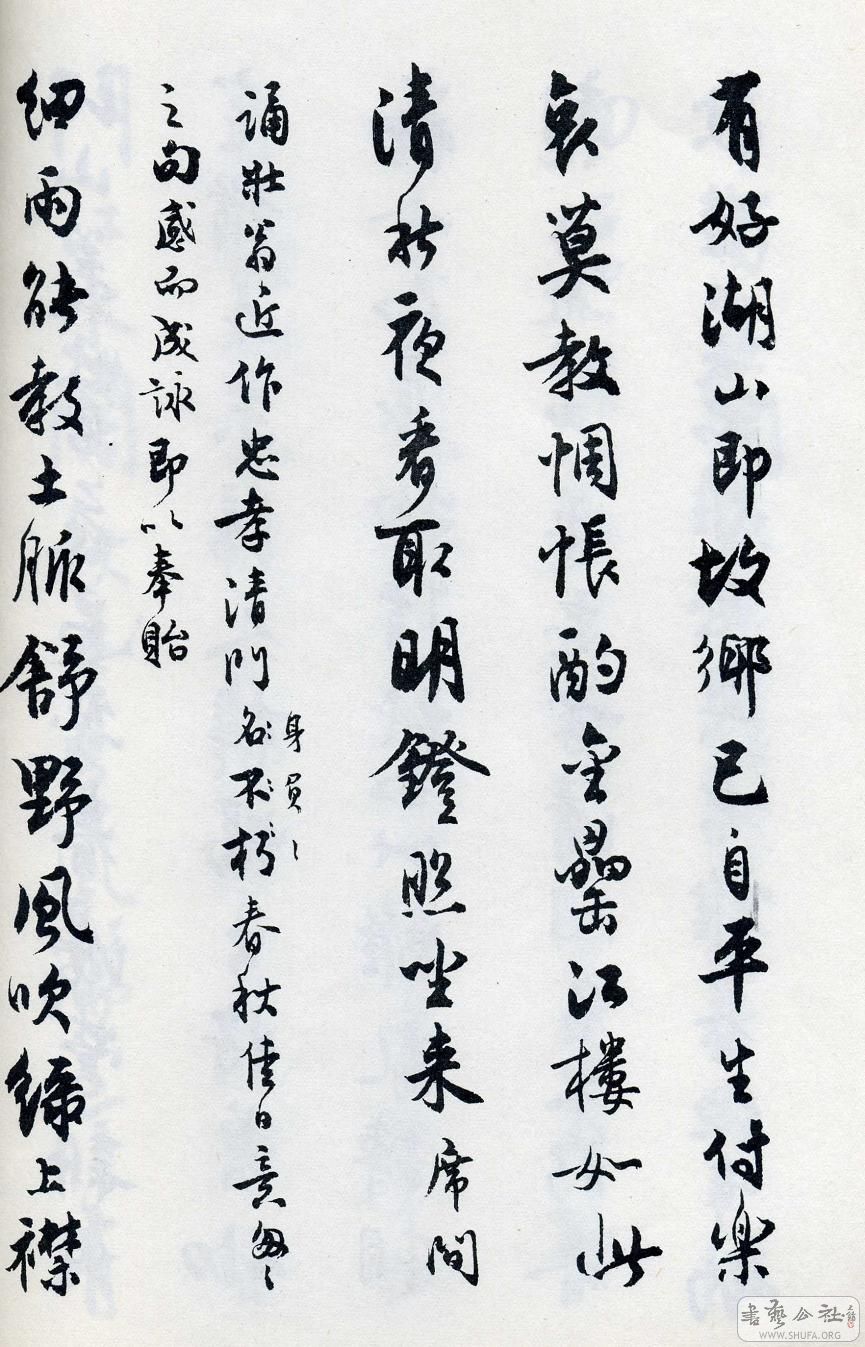 有好湖山即故鄉已自平生付樂
哀莫教惆悵酌金罍江樓如此
清秋夜看取明鐙照坐来席間
誦壯翁近作忠孝清門名不朽春秋佳日意匆〻
身員〻
之句感而成詠即以奉貽
細雨能教土脈舒野風吹綠上襟
書藝公社
WWW.SHUFA.ORG